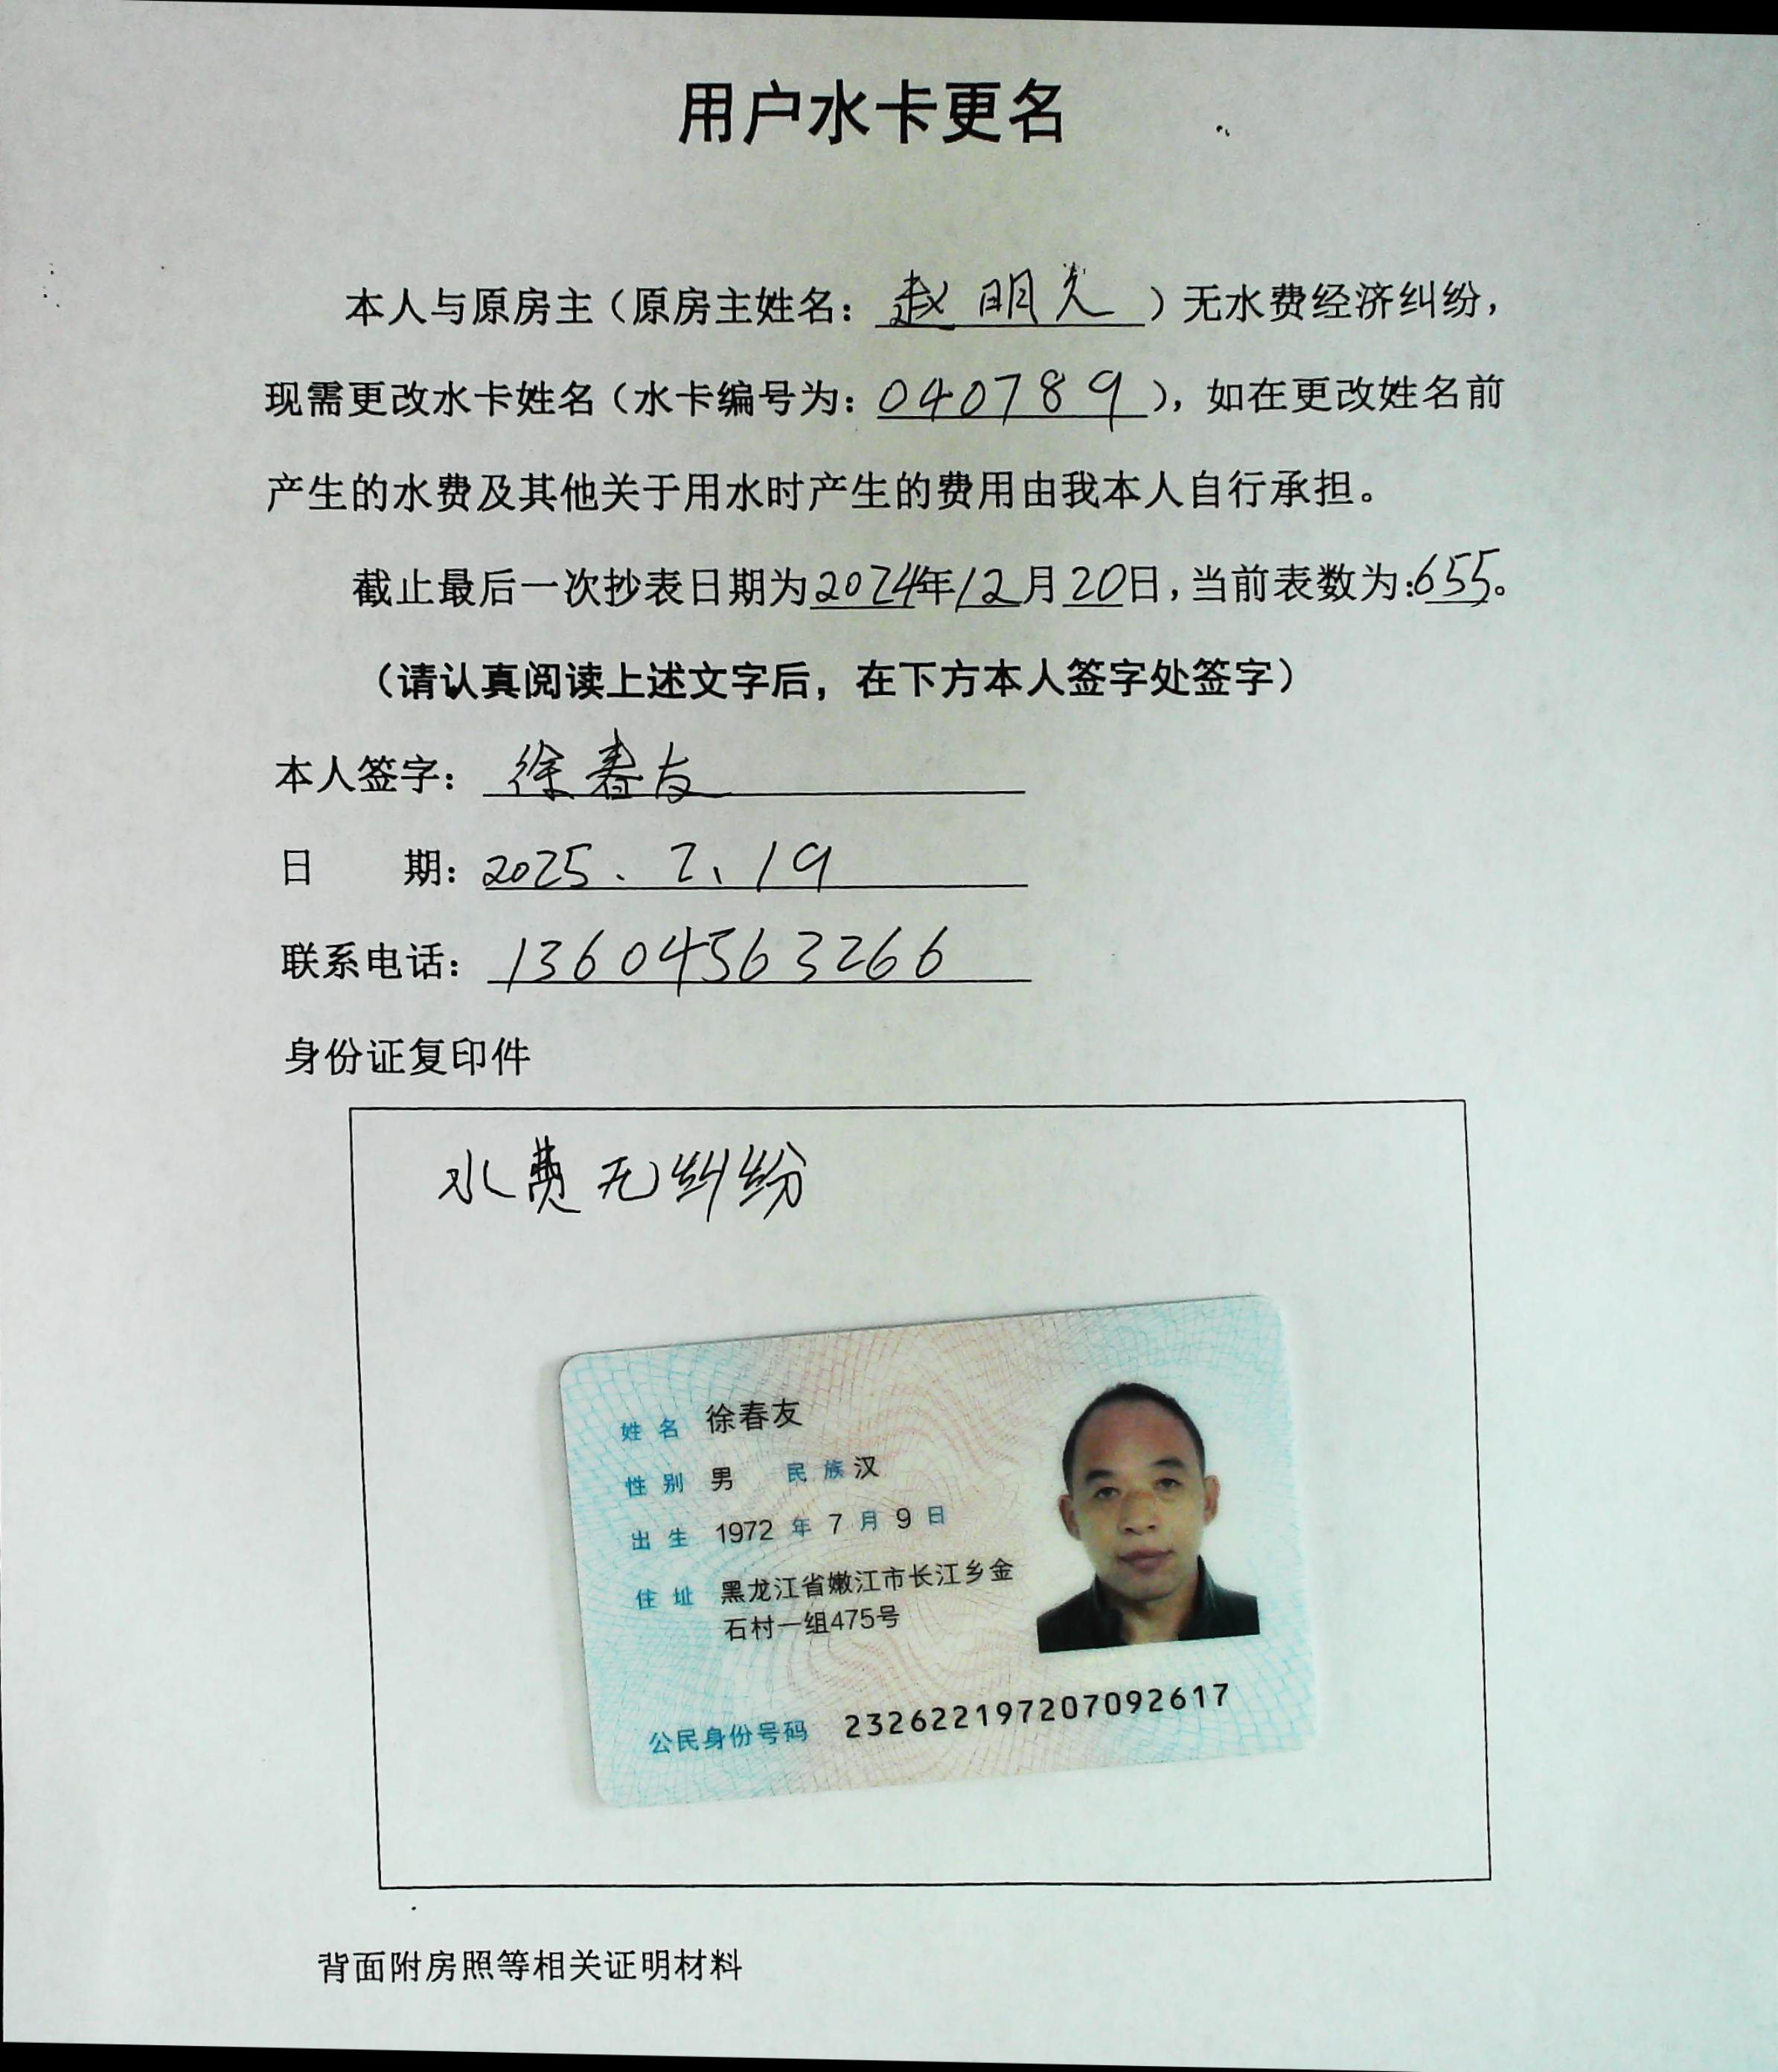 用户水卡更名
本人与原房主（原房主姓名：赵明光）无水费经济纠纷，
现需更改水卡姓名（水卡编号为：040789），如在更改姓名前
产生的水费及其他关于用水时产生的费用由我本人自行承担。
截止最后一次抄表日期为2024年12月20日，当前表数为：655。
（请认真阅读上述文字后，在下方本人签字处签字）
本人签字：徐春友
日 期：2025.2.19
联系电话：13604563266
身份证复印件
水费无纠纷
姓名 徐春友
性别 男 民族 汉
出生 1972 年 7 月 9 日
住址 黑龙江省嫩江市长江乡金
石村一组475号
公民身份号码 232622197207092617
背面附房照等相关证明材料